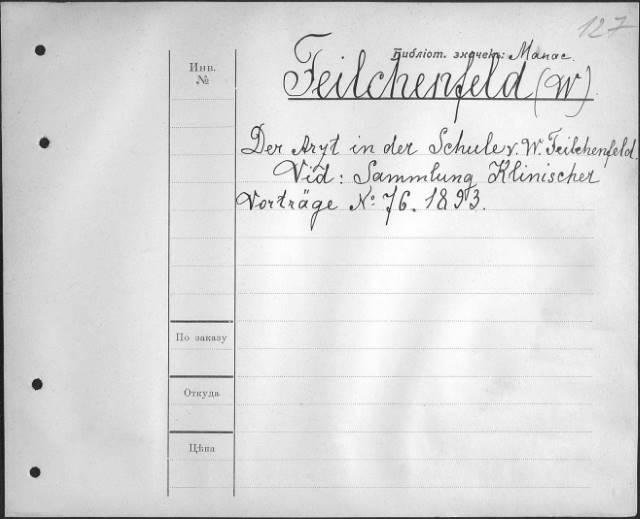 127
Библіот. значекъ: Манас.
Инв.
№
Feilchenfeld (W)
Der Arzt in der Schule v. W. Feilchenfeld.
Vid: Sammlung Klinischer
Vorträge No: 76. 1893.
По заказу
Откуда
Цѣна